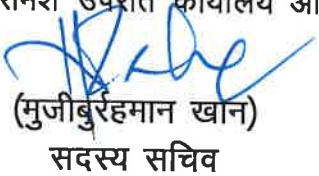 उपरांत कार्यालय
(मुजीबुर्रहमान खान)
सदस्य सचिव